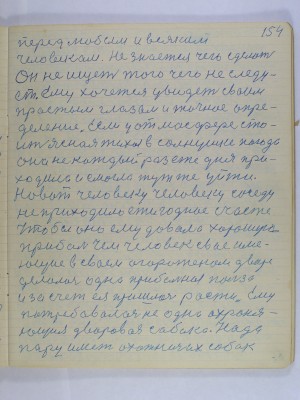 159
перед тобсем и всяким
человекам. Не знается чего сделать
Он не ищет того чего не следу-
ет. Ему хочется увидет своим
простым глазам и точное опре-
деление. Если у отмасфере сто-
ит ясная тихая в солнцине погода
она не каждый раз сте дня при-
ходила и смогла тут же уйти.
человеку человеку соседу
не приходило счастие
Чтобы оно ему довала хорошую
прибол чем человек свае име-
ющие в своем огороженом дваре
делался одна прибольная польза
и за счет ея пришлося расти, Ему
потребавался не одна охраня-
ющия дваровая сабака. Нада
пару имет охотничих собак